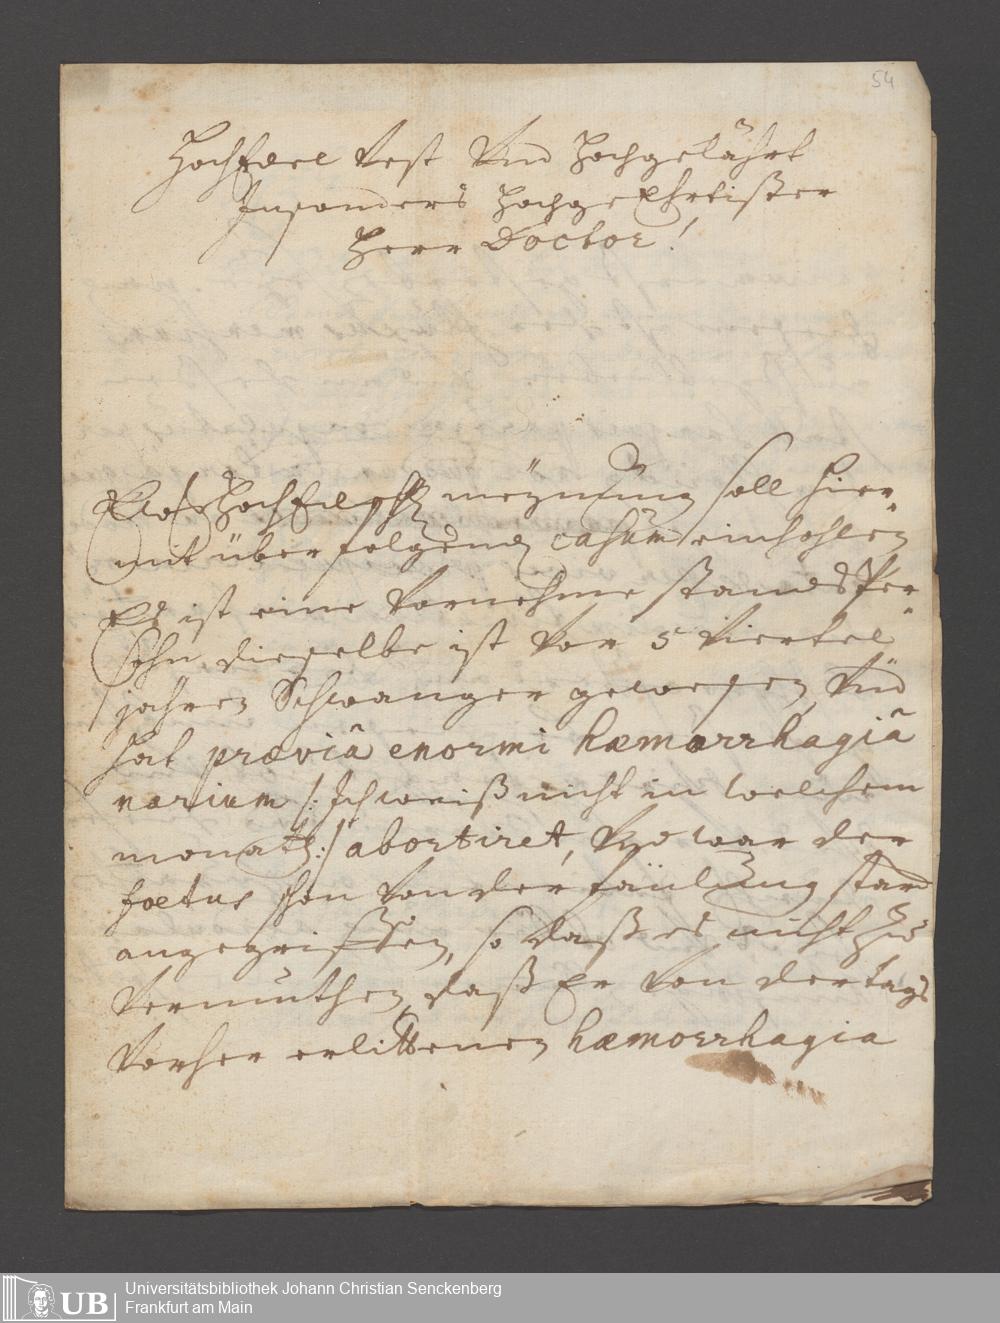 54
HochEdel Vest Vnd Hochgelährt
Insonders HochgeEhrtister
Herr Doctor!
HochEdel meynung soll hier
mit über folgenden casum einhohlen
Es ist eine Vornehme standsPer-
sohn dieselbe ist Vor 5 Viertel
jahren Schwanger gewesen, Vnd
hat præviâ enormi hæmorrhagiâ
narium /: Ich weiß nicht in welchem
monath :/ abortiret, Vnd war der
foetus schon Von der fäulung starck
angegriffen, so daß es nicht Zu
Vermuthen, daß Er Von der tags
Vorher erlittenen hæmorrhagia
UB
Universitätsbibliothek Johann Christian Senckenberg
Frankfurt am Main